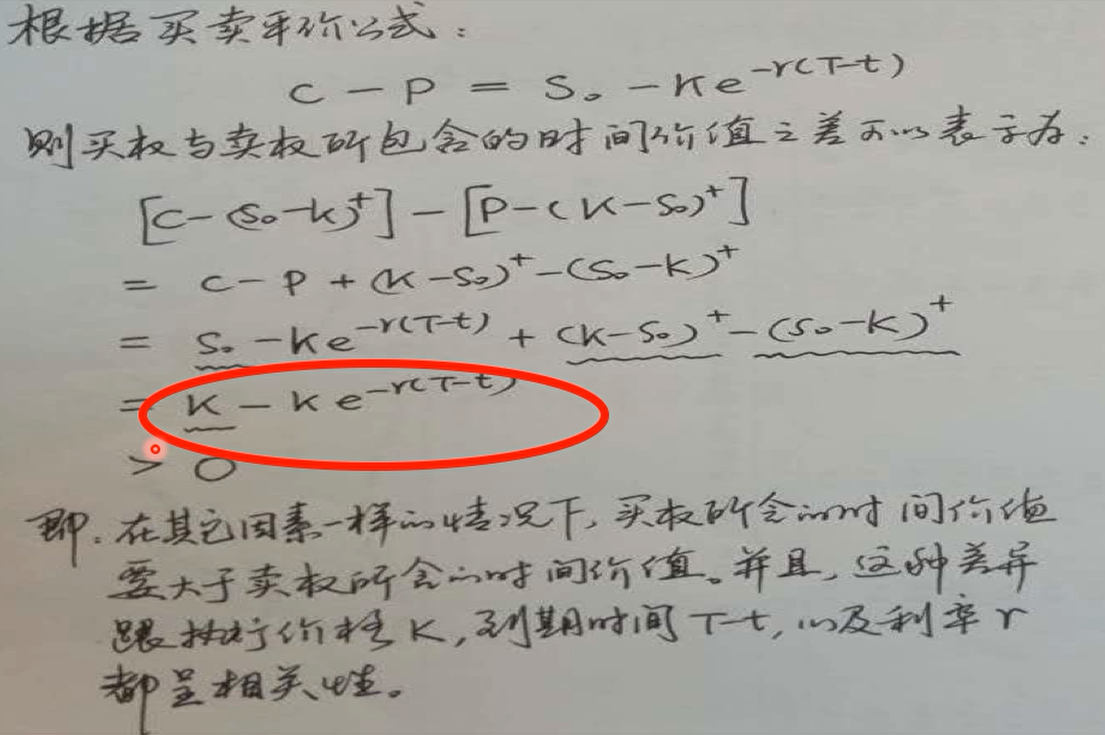 根据买卖平价公式:
C - P = S₀ - Ke^{-r(T-t)}
则买权与卖权所包含的时间价值之差可以表示为:
[C-(S₀-K)⁺] - [P-(K-S₀)⁺]
= C - P + (K-S₀)⁺ - (S₀-K)⁺
= S₀ - Ke^{-r(T-t)} + (K-S₀)⁺ - (S₀-K)⁺
= K - Ke^{-r(T-t)}
> 0
即:在其它因素一样的情况下,买权所含的时间价值
要大于卖权所含的时间价值。并且,这种差异
跟执行价格K,到期时间T-t,以及利率r
都呈相关性。